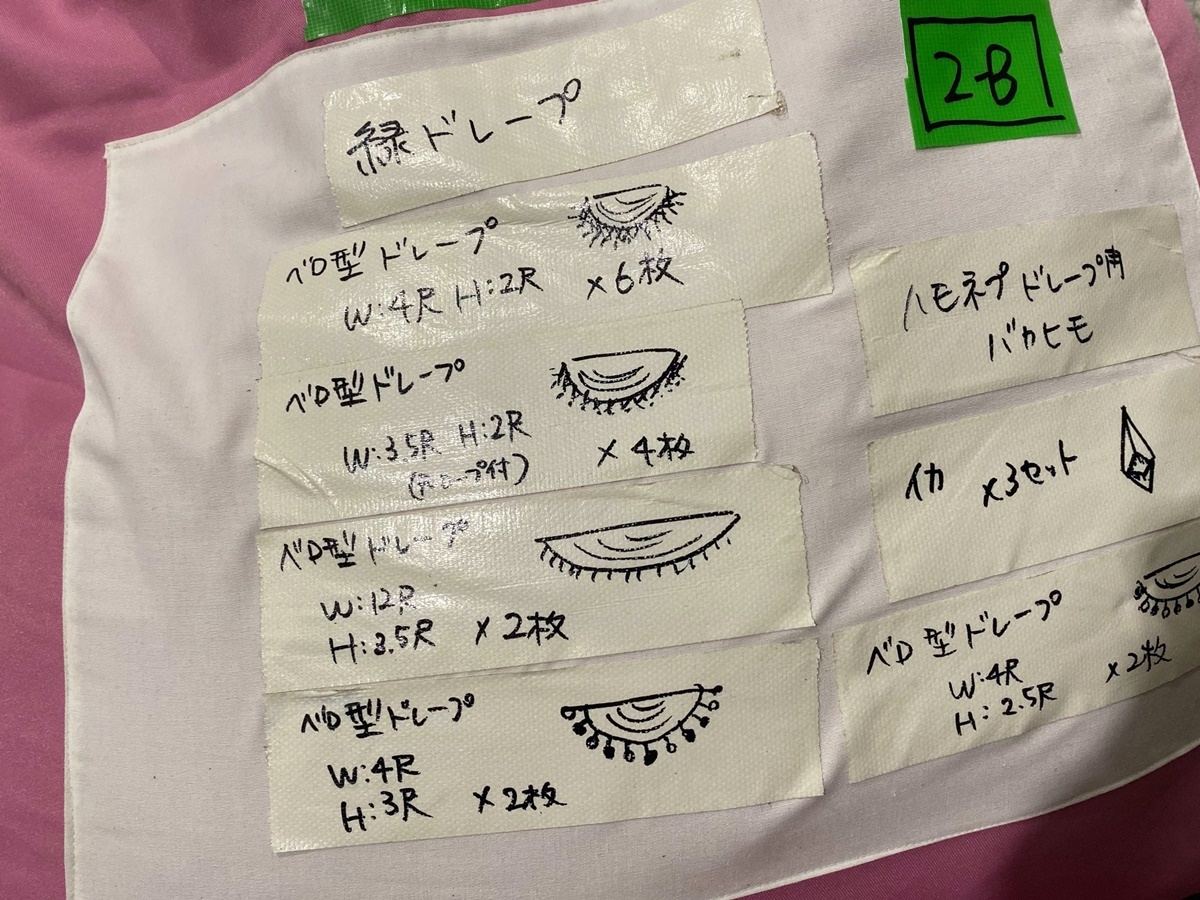 2-8
緑ドレープ
ベロ型ドレープ
W:4尺 H:2尺 ×6枚
ベロ型ドレープ
W:3.5尺 H:2尺
×4枚
ベロ型ドレープ
W:12尺
H:3.5尺 ×2枚
ベロ型ドレープ
W:4尺
H:3尺 ×2枚
ハモネプドレープ用
バカヒモ
イカ ×3セット
ベロ型ドレープ
W:4尺
H:2.5尺 ×2枚